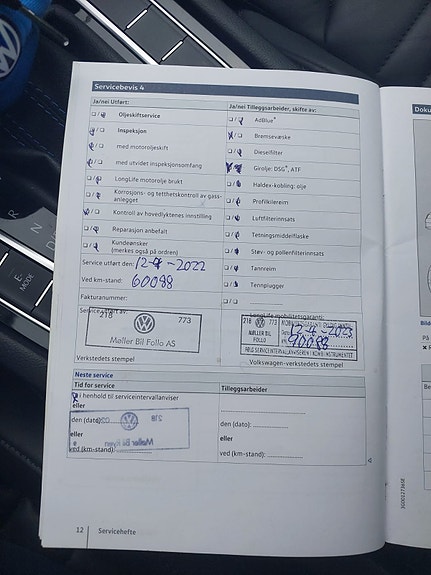 Servicebevis 4
Ja/nei Utført:
Oljeskiftservice
Inspeksjon
med motoroljeskift
med utvidet inspeksjonsomfang
LongLife motorolje brukt
Korrosjons- og tetthetskontroll av gass-
anlegget
Kontroll av hovedlyktenes innstilling
Reparasjon anbefalt
Kundeønsker
(merkes også på ordren)
Service utført den: 12-4-2022
Ved km-stand: 60088
Fakturanummer:
Service utført av:
218 773
Møller Bil Follo AS
Verkstedets stempel
Ja/nei Tilleggsarbeider, skifte av:
AdBlue*
Bremsevæske
Dieselfilter
Girolje: DSG*, ATF
Haldex-kobling: olje
Profilkilereim
Luftfilterinnsats
Tetningsmiddelflaske
Støv- og pollenfilterinnsats
Tannreim
Tennplugger
LongLife mobilitetsgaranti:
218 773
MØLLER BIL
FOLLO
12-4-2023
90088
FØLG SERVICEINTERVALLVISEREN I KOMBIINSTRUMENTET
Volkswagen-verkstedets stempel
Neste service
Tid for service
Tilleggsarbeider:
i henhold til serviceintervallanviser
eller
den (dato):
eller
ved (km-stand):
den (dato):
eller
ved (km-stand):
12 Servicehefte
E-
MODE
N
R